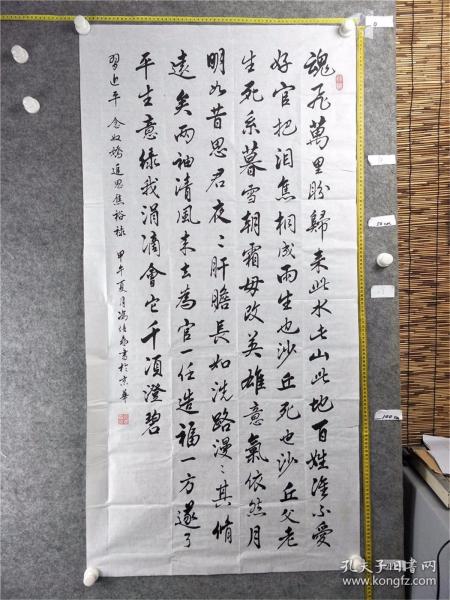 魂飛萬里盼歸来此水此山此地百姓誰不愛
好官把泪焦桐成雨生也沙丘死也沙丘父老
生死系暮雪朝霜毋改英雄意氣依然月
明如昔思君夜〻肝膽長如洗路漫〻其脩
遠矣两袖清風来去為官一任造福一方遂了
平生意緑我涓滴會它千頃澄碧
習近平 念奴嬌追思焦裕禄 甲午夏月馮 書於京華
50cm
100cm
孔夫子旧书网
www.kongfz.com